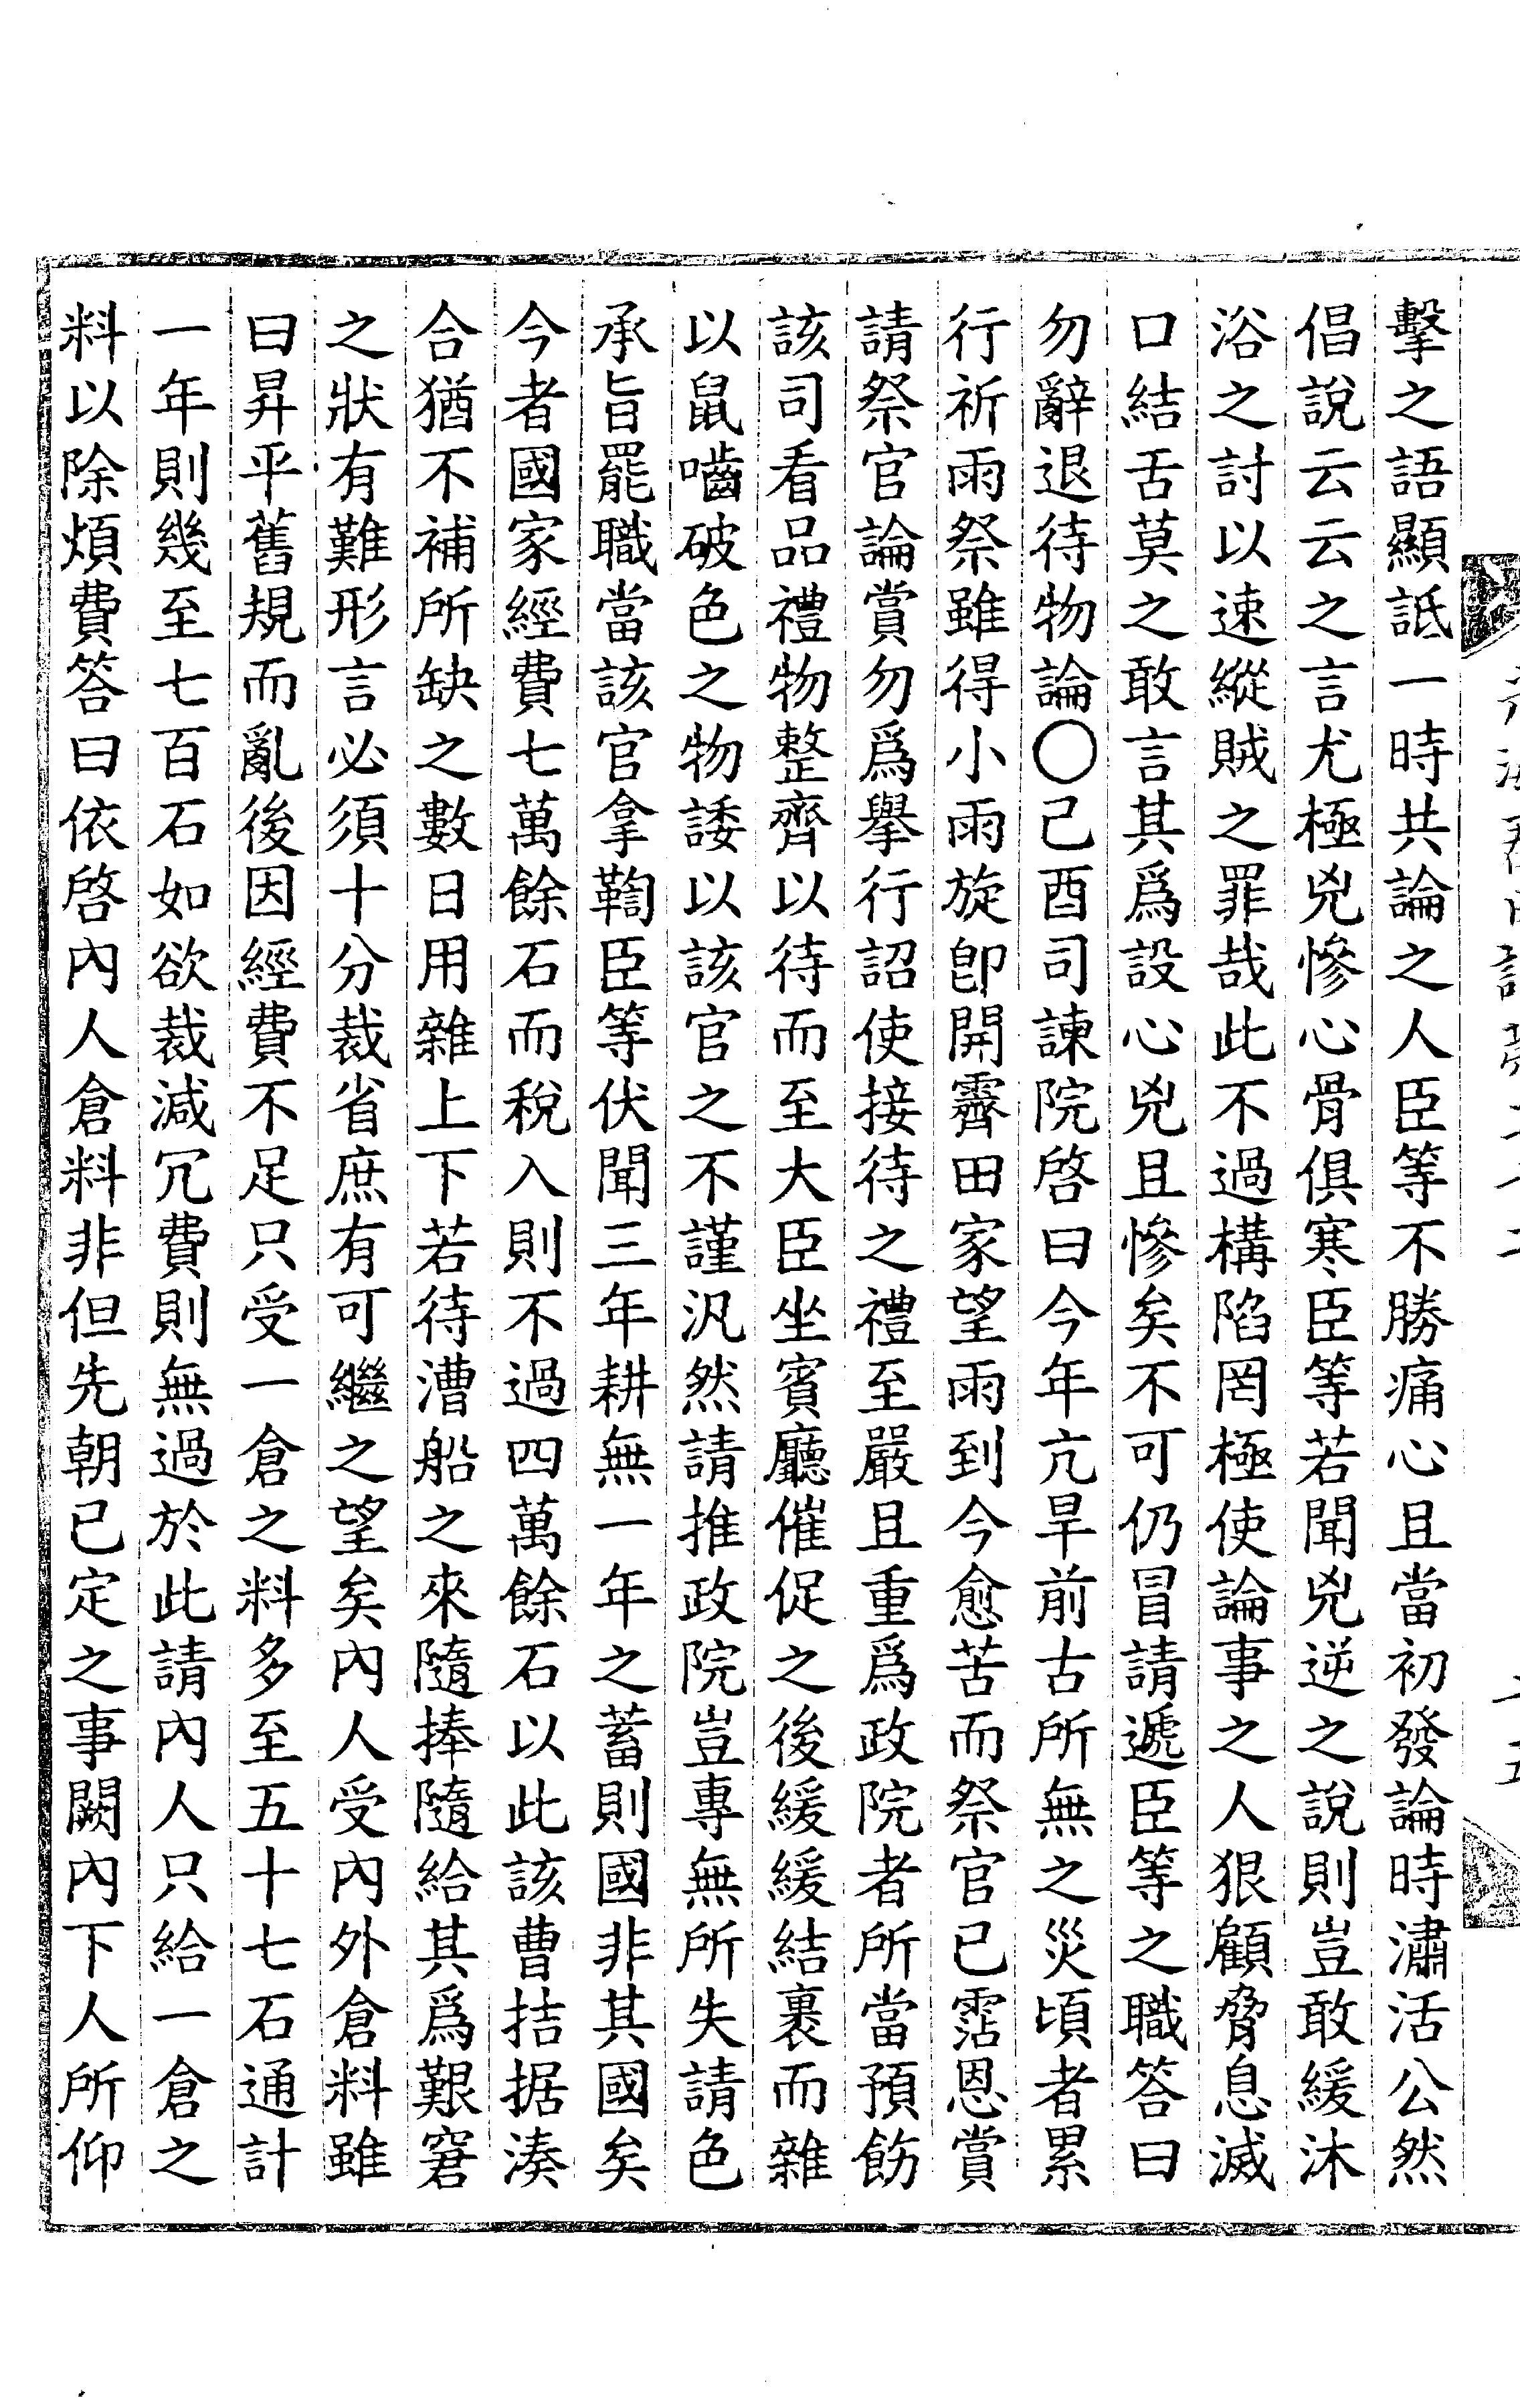 擊之語顯詆一時共論之人臣等不勝痛心且當初發論時潚活公然
倡說云云之言尤極兇慘心骨俱寒臣等若聞兇逆之說則豈敢緩沐
浴之討以速縱賊之罪哉此不過構陷罔極使論事之人狠顧脅息滅
口結舌莫之敢言其爲設心兇且慘矣不可仍冒請遞臣等之職答曰
勿辭退待物論〇己酉司諫院啓曰今年亢旱前古所無之災頃者累
行祈雨祭雖得小雨旋卽開霽田家望雨到今愈苦而祭官已霑恩賞
請祭官論賞勿爲擧行詔使接待之禮至嚴且重爲政院者所當預飭
該司看品禮物整齊以待而至大臣坐賓廳催促之後緩緩結裹而雜
以鼠嚙破色之物諉以該官之不謹汎然請推政院豈專無所失請色
承旨罷職當該官拿鞫臣等伏聞三年耕無一年之蓄則國非其國矣
今者國家經費七萬餘石而稅入則不過四萬餘石以此該曹拮据湊
合猶不補所缺之數日用雜上下若待漕船之來隨捧隨給其爲艱窘
之狀有難形言必須十分裁省庶有可繼之望矣內人受內外倉料雖
曰昇平舊規而亂後因經費不足只受一倉之料多至五十七石通計
一年則幾至七百石如欲裁減冗費則無過於此請內人只給一倉之
料以除煩費答曰依啓內人倉料非但先朝已定之事闕內下人所仰